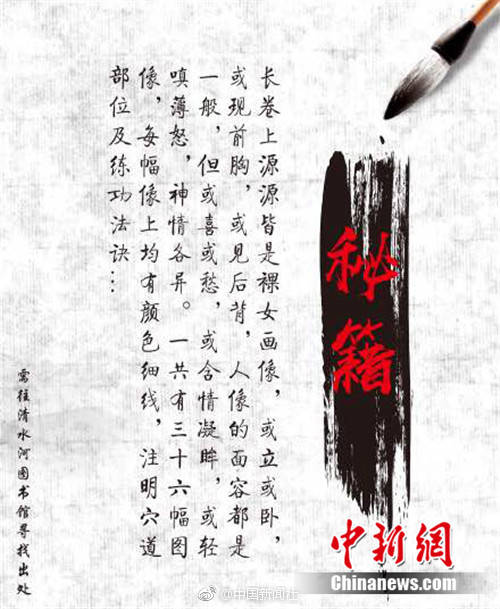 秘籍
长卷上源源皆是裸女画像，或立或卧，
或现前胸，或见后背，人像的面容都是
一般，但或喜或愁，或含情凝眸，或轻
嗔薄怒，神情各异。一共有三十六幅图
像，每幅像上均有颜色细线，注明穴道
部位及练功法诀…
需往清水河图书馆寻找出处
中新網
Chinanews.com
@中国新闻社